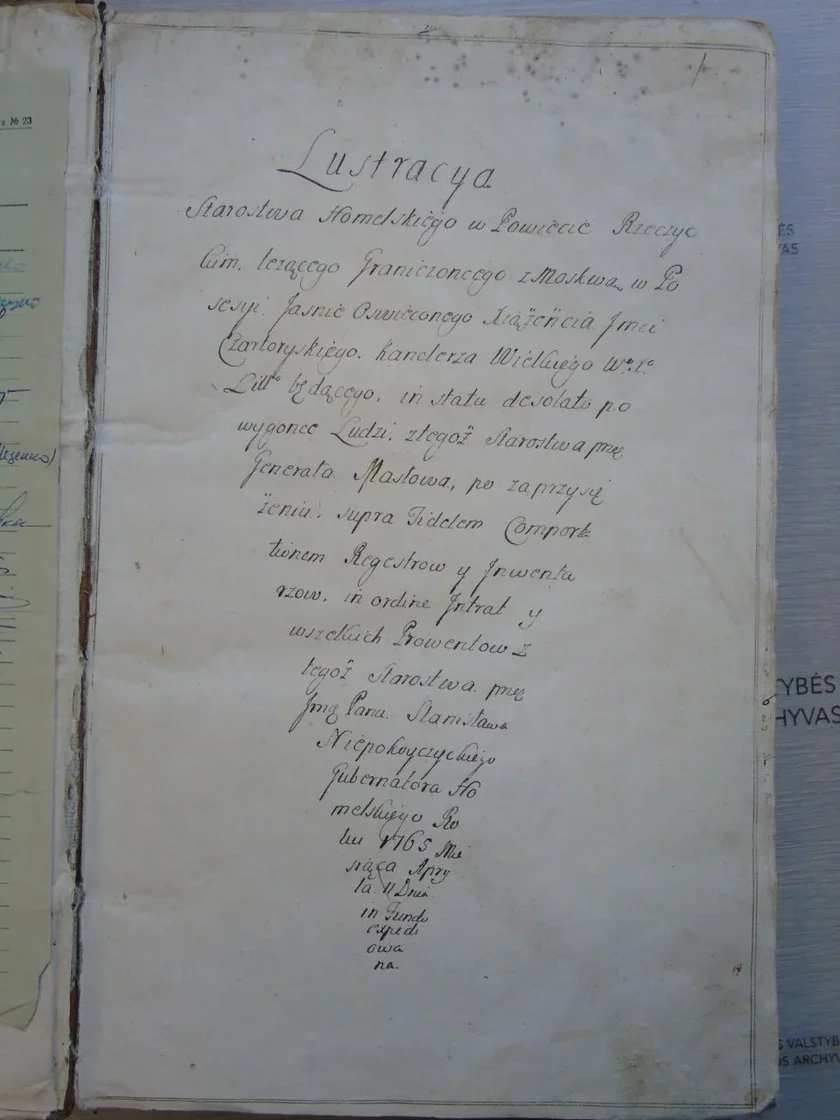 a № 23
Lustracya
Starostwa Homelskiego w Powiecie Rzeczyc
kim, lezącego Graniczoncego z Moskwą, w Po
sesyi Jasnie Oswieconego Xiążęncia Jmci
Czartoryskiego. Kanclerza Wielkiego Wº. Xº
Littº będącego, in statu desolato po
wygonce Ludzi, z tegoż Starostwa przez
Generała Masłowa, po zaprzysię
żeniu, supra Fidelem Comport:
tionem Regestrow y Jnwenta
rzow, in ordine Jntrat y
wszelkich Prowentow z
tegoż Starostwa przez
Jmę Pana Stanisława
Niepokoyczyckiego
Gubernatora Ho
melskiego Ro
ku 1765 Mie
siąca Apry
la 11 Dnia
in Fundo
expedi
owa
na.
ĖS
VAS
TYBĖS
HYVAS
S VALSTYB
OS ARCHYV